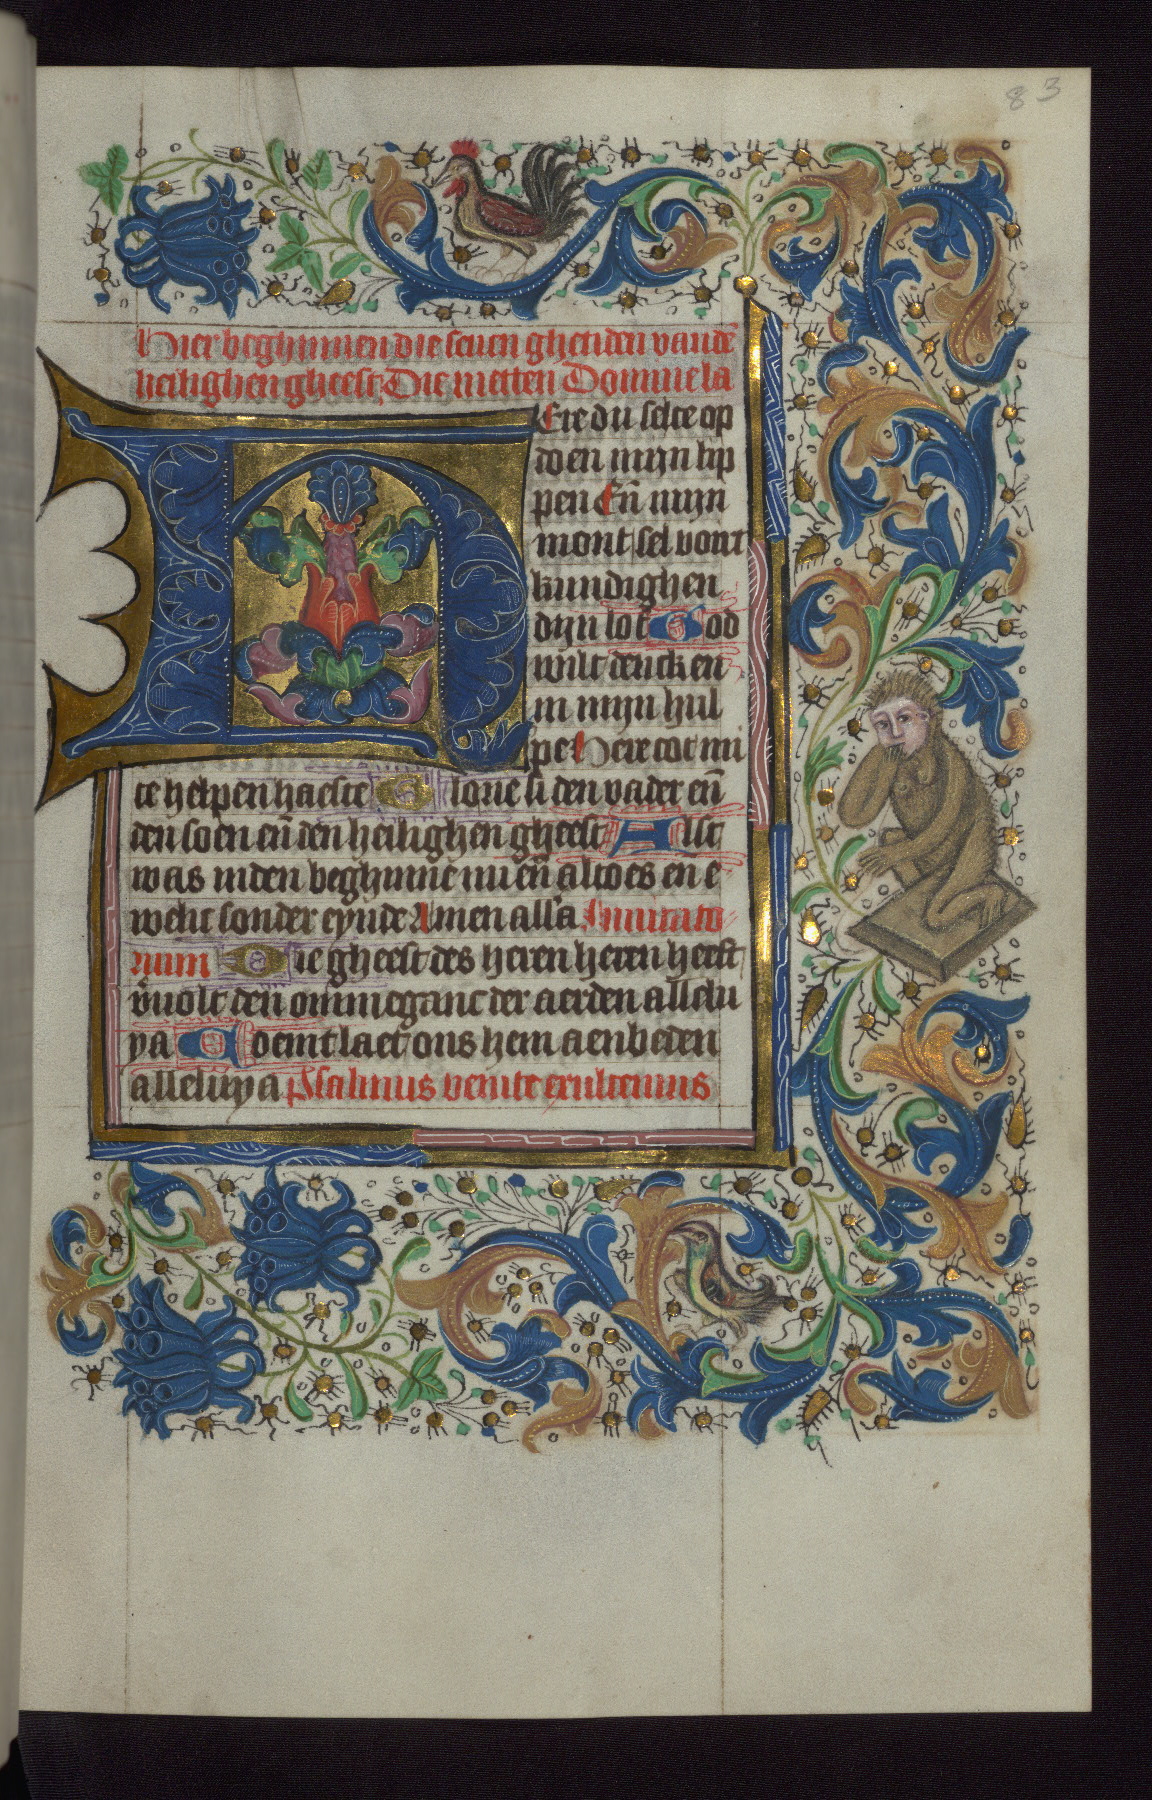 83
Hier beghinnen die seuen ghetiden vandē
heilighen gheest; Die metten Domine la
HEre du selte op
doen mijn lip
pen Eñ mijn
mont sel vont
kundighen
dijn lof God
wilt dencken
in mijn hul
pe Here tot mi
te helpen haeste Glorie si den vader eñ
den soen eñ den heilighen gheest Alst
was inden beghinne nu eñ altoes en e
welic sonder eynde Amen all'a Inuitato
rium Die gheest des heren heren heeft
v̄uolt den ommeganc der aerden allelu
ya Coemt laet ons hem aenbeden
alleluya Psalmus venite exultemus